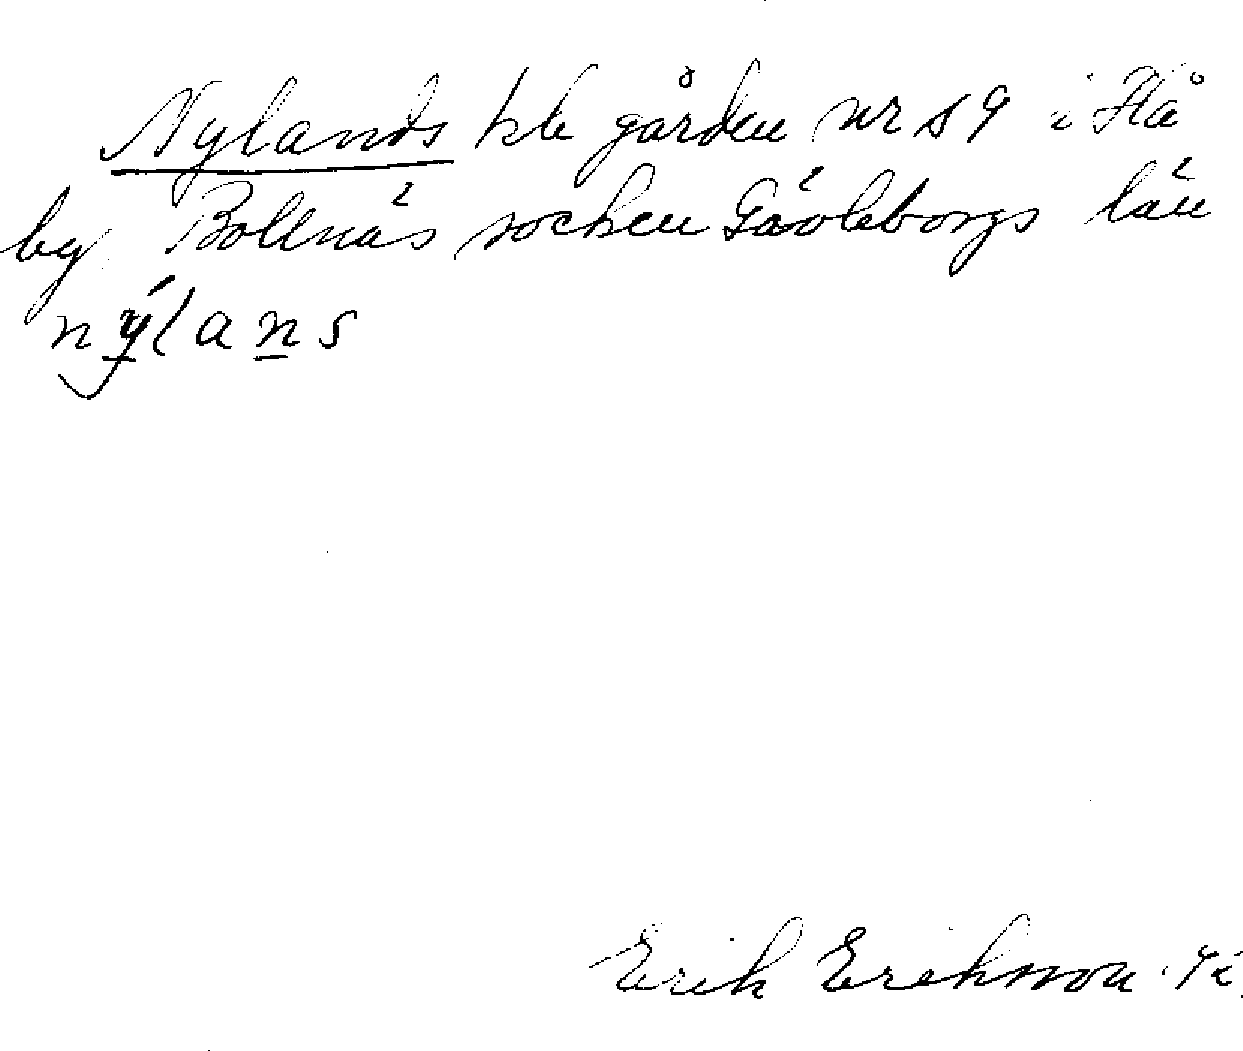 Nylands kb gården nr 59 i Hå
by Bollnäs socken Gävleborgs län
nýlans
Erik Eriksson